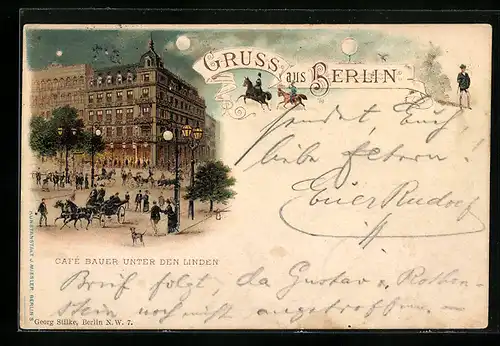 GRUSS aus BERLIN
sendet Euch
liebe Eltern!
Euer Rudolf
CAFÉ BAUER UNTER DEN LINDEN
Brief folgt, da Gustav u. Rothen-
stein noch nicht angetroffen.
Georg Stilke, Berlin N.W. 7.
KUNSTANSTALT J. MIESLER, BERLIN S.